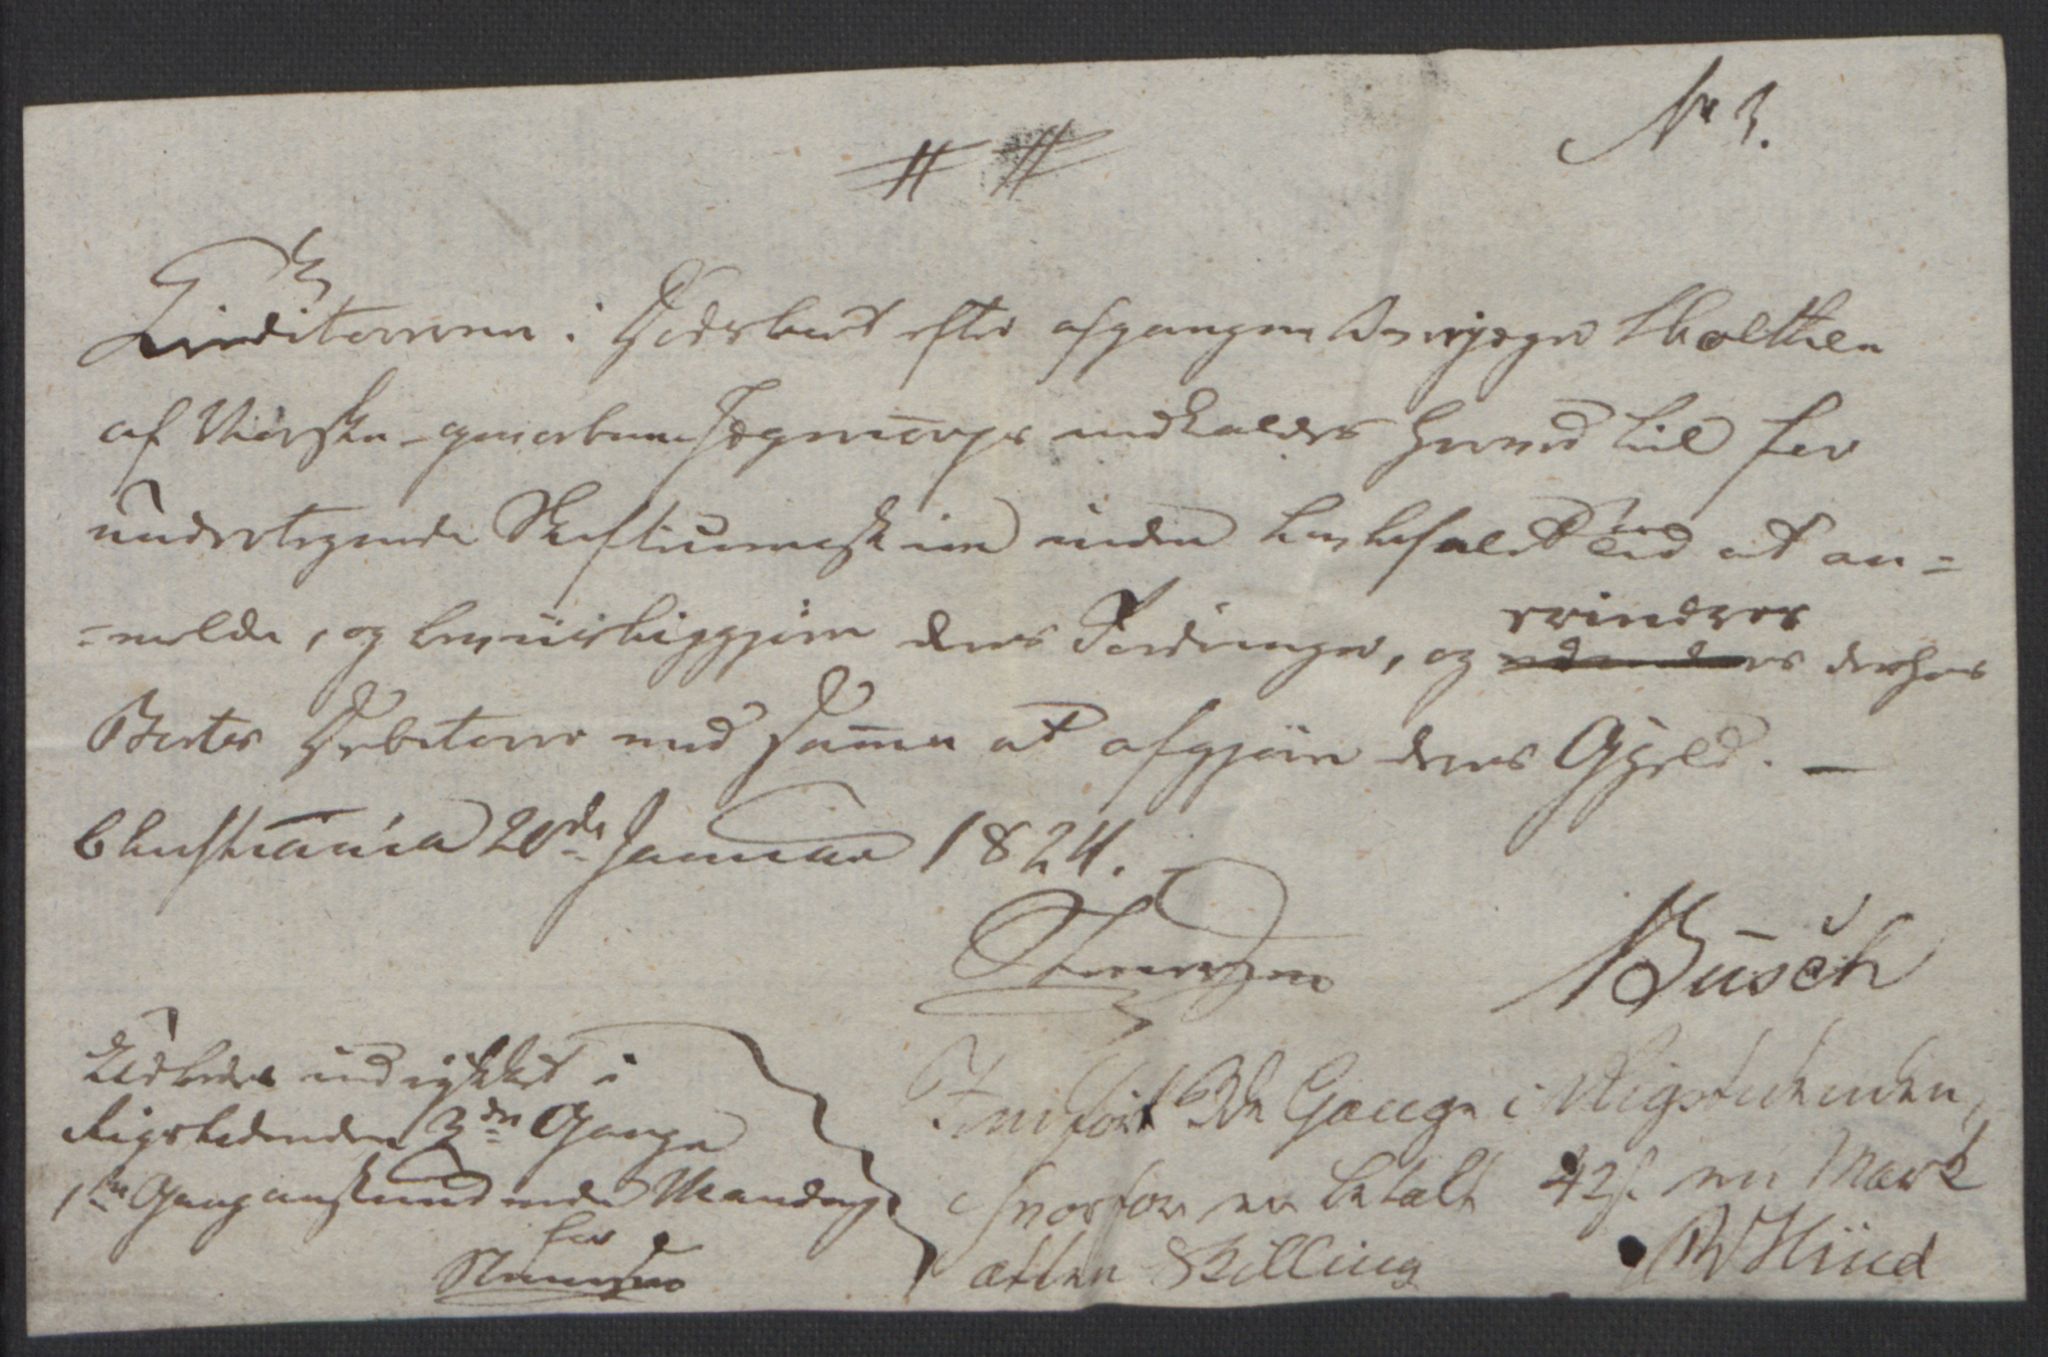 No 3.
Creditorerne i Dødsboet efter afgangne Berrijæger Skolthen
af Norske gevorbne Jægercorps indkaldes herved til for
undertegnede Skiftecommission inden lovbefalet Tid at an=
=melde, og beviisliggjøre deres Fordringer, og erindres derhos
Boets Debitorer med samme at afgjøre deres Gjeld. —
Christiania 20de Januar 1824.
Busch
Udbedes indrykket i
Rigstidenden 3de Gange
1ste Gang anstundende Mandag
Indført 3de Gange i Rigstidenden,
hvorfor er betalt 42 s. een Mark
atten Skilling
Hiud